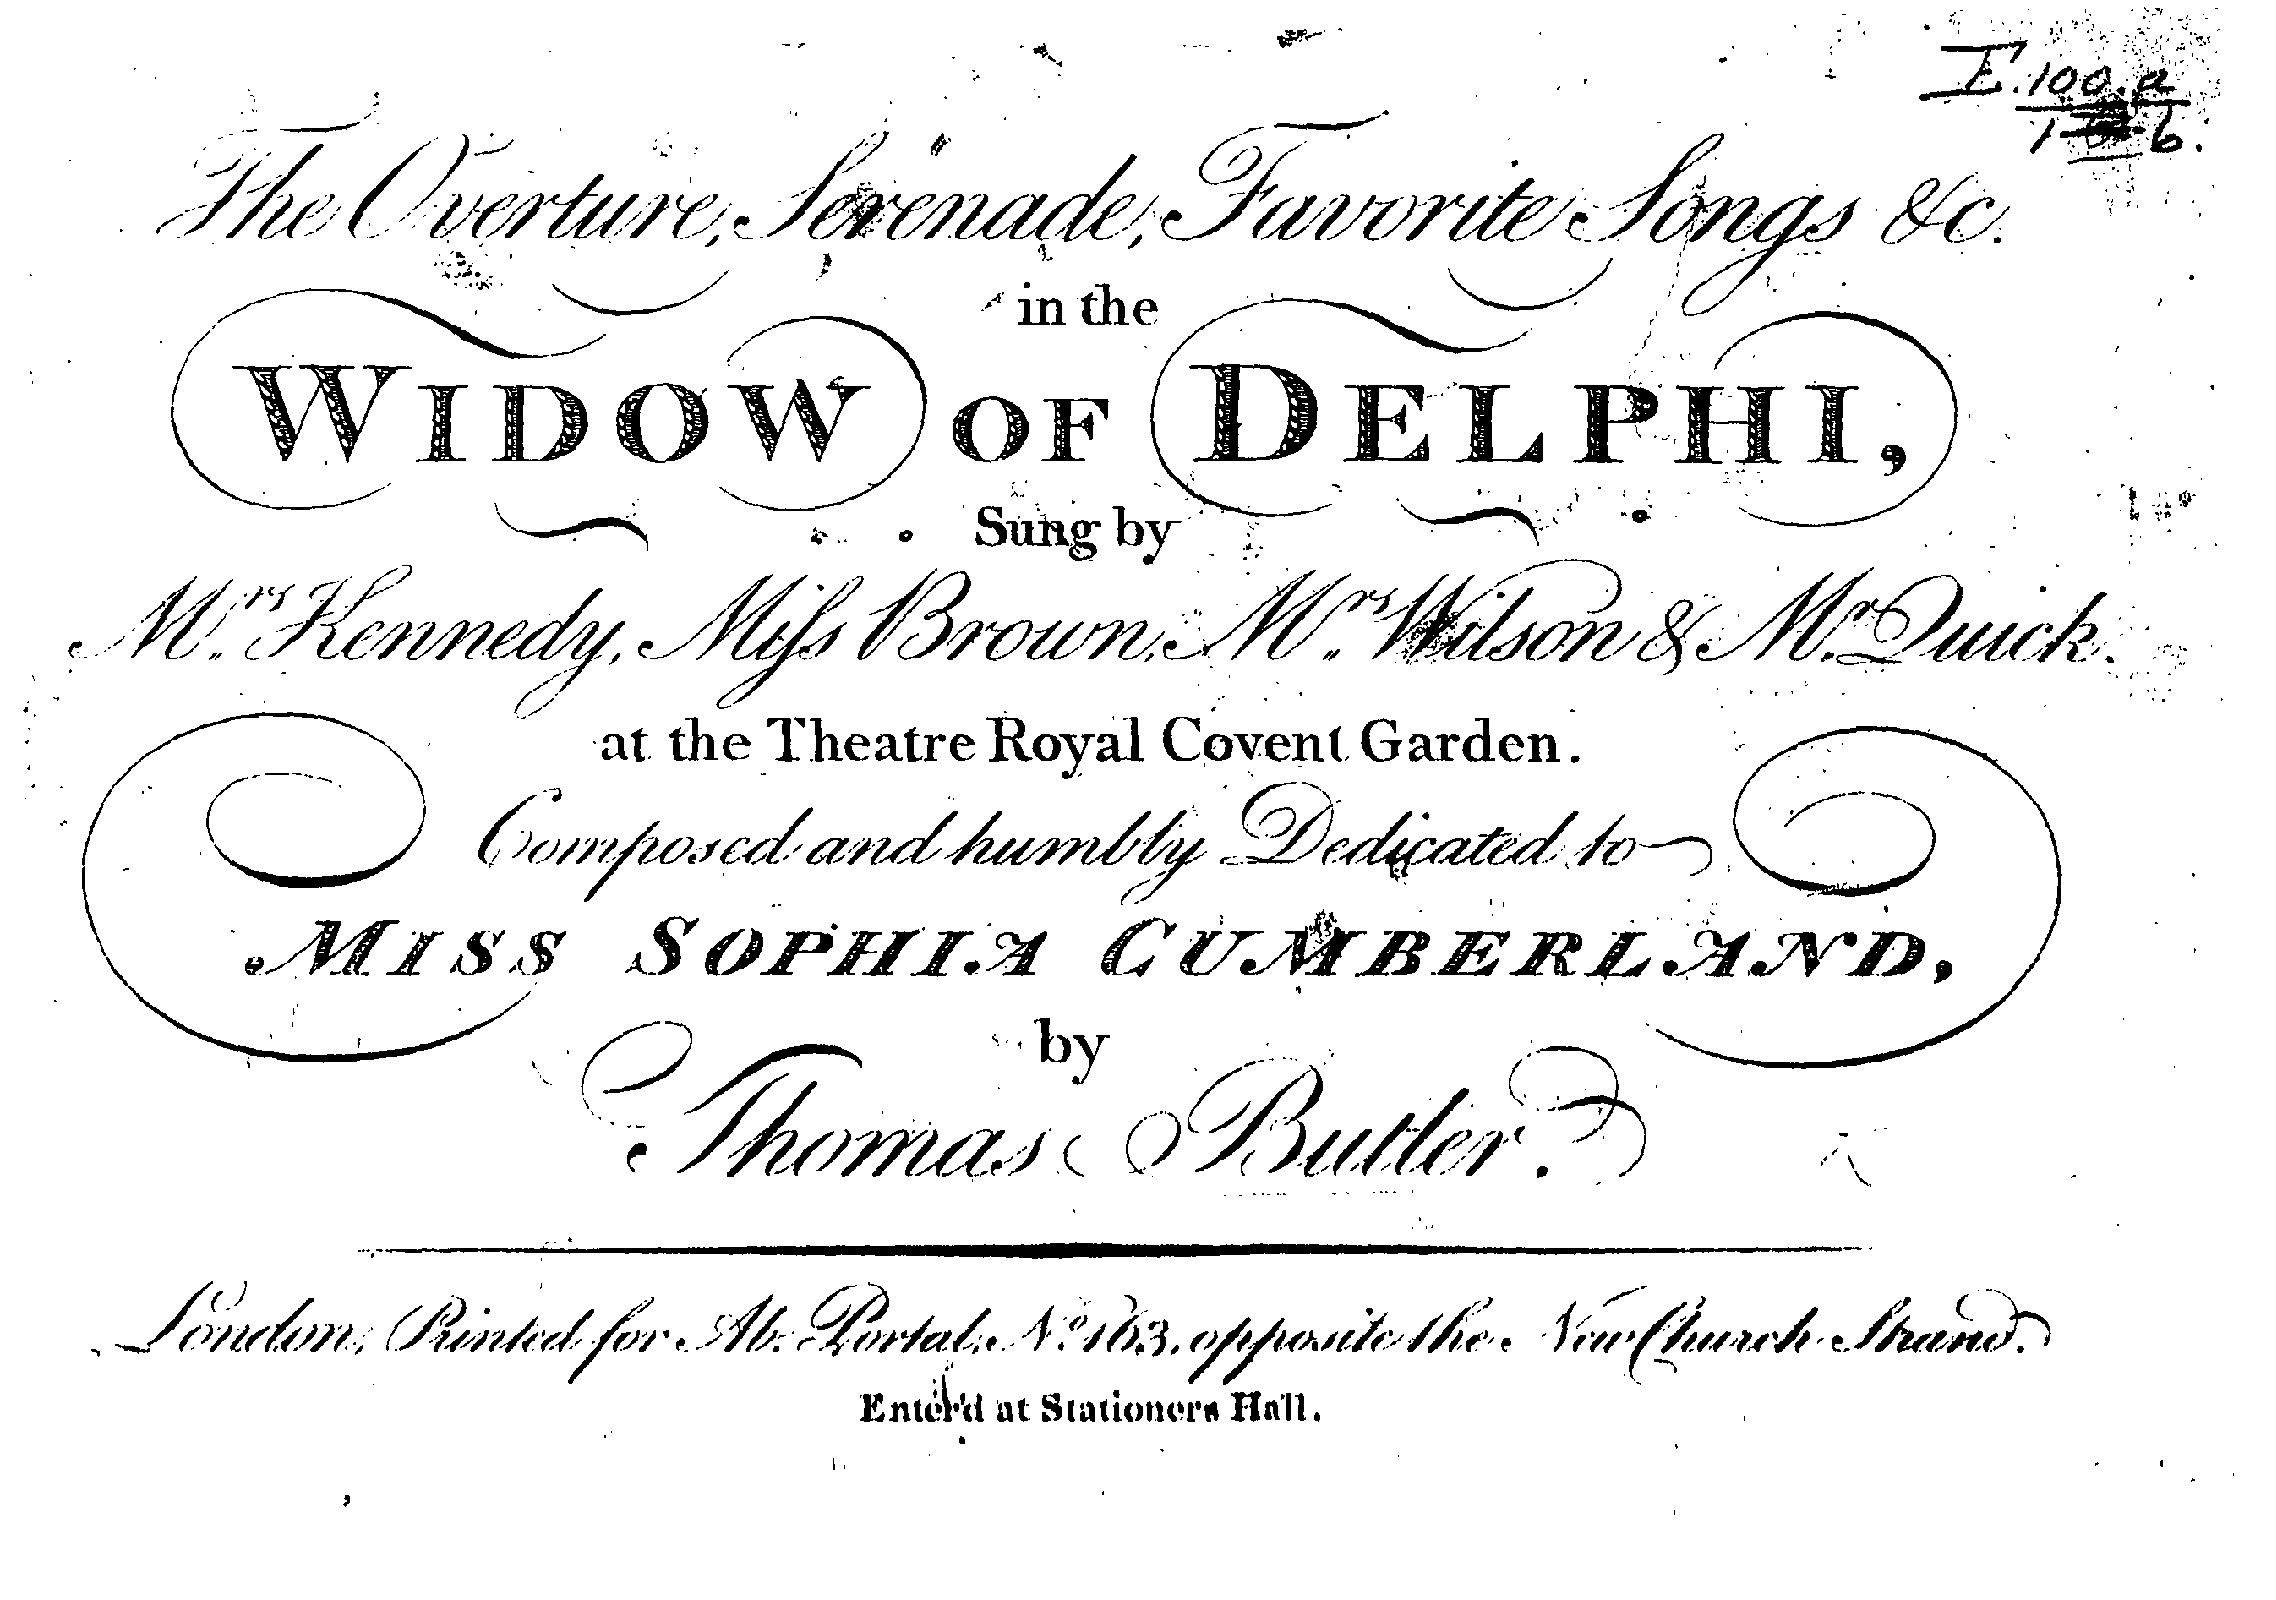 E.100.a
b.
The Overture, Serenade, Favorite Songs &c.
in the
WIDOW OF DELPHI,
Sung by
Mrs. Kennedy, Miſs Brown, Mrs. Wilson & Mr. Quick.
at the Theatre Royal Covent Garden.
Composed and humbly Dedicated to
MISS SOPHIA CUMBERLAND,
by
Thomas Butler.
London, Printed for Ab. Portal, No. 163, opposite the New Church Strand.
Enter'd at Stationers Hall.